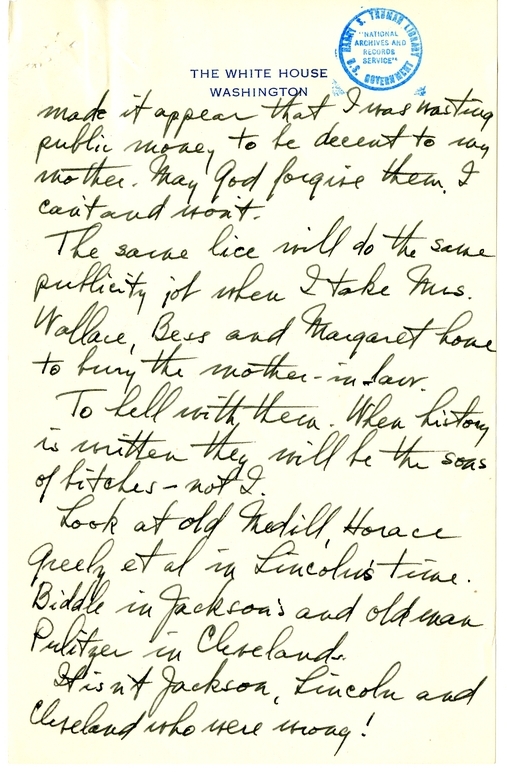 HARRY S. TRUMAN LIBRARY
"NATIONAL
ARCHIVES AND
RECORDS
SERVICE"
U.S. GOVERNMENT
THE WHITE HOUSE
WASHINGTON
made it appear that I was wasting
public money to be decent to my
mother. May God forgive them, I
can't and won't.
The same lice will do the same
publicity job when I take Mrs.
Wallace, Bess and Margaret home
to bury the mother-in-law.
To hell with them. When history
is written they will be the sons
of bitches - not I.
Look at old Medill, Horace
Greely et al in Lincoln's time.
Biddle in Jackson's and old man
Pulitzer in Clevelands.
It isn't Jackson, Lincoln and
Cleveland who were wrong!